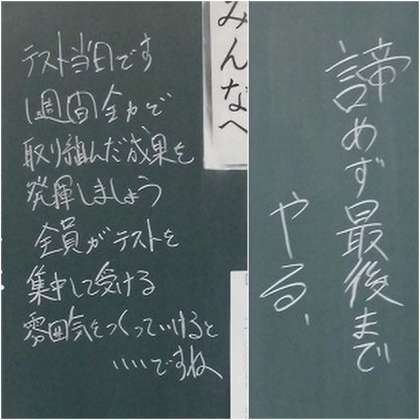 みんなへ
テスト当日です
1週間全力で
取り組んだ成果を
発揮しましょう
全員がテストを
集中して受ける
雰囲気をつくっていけると
いいですね
諦めず最後まで
やる、